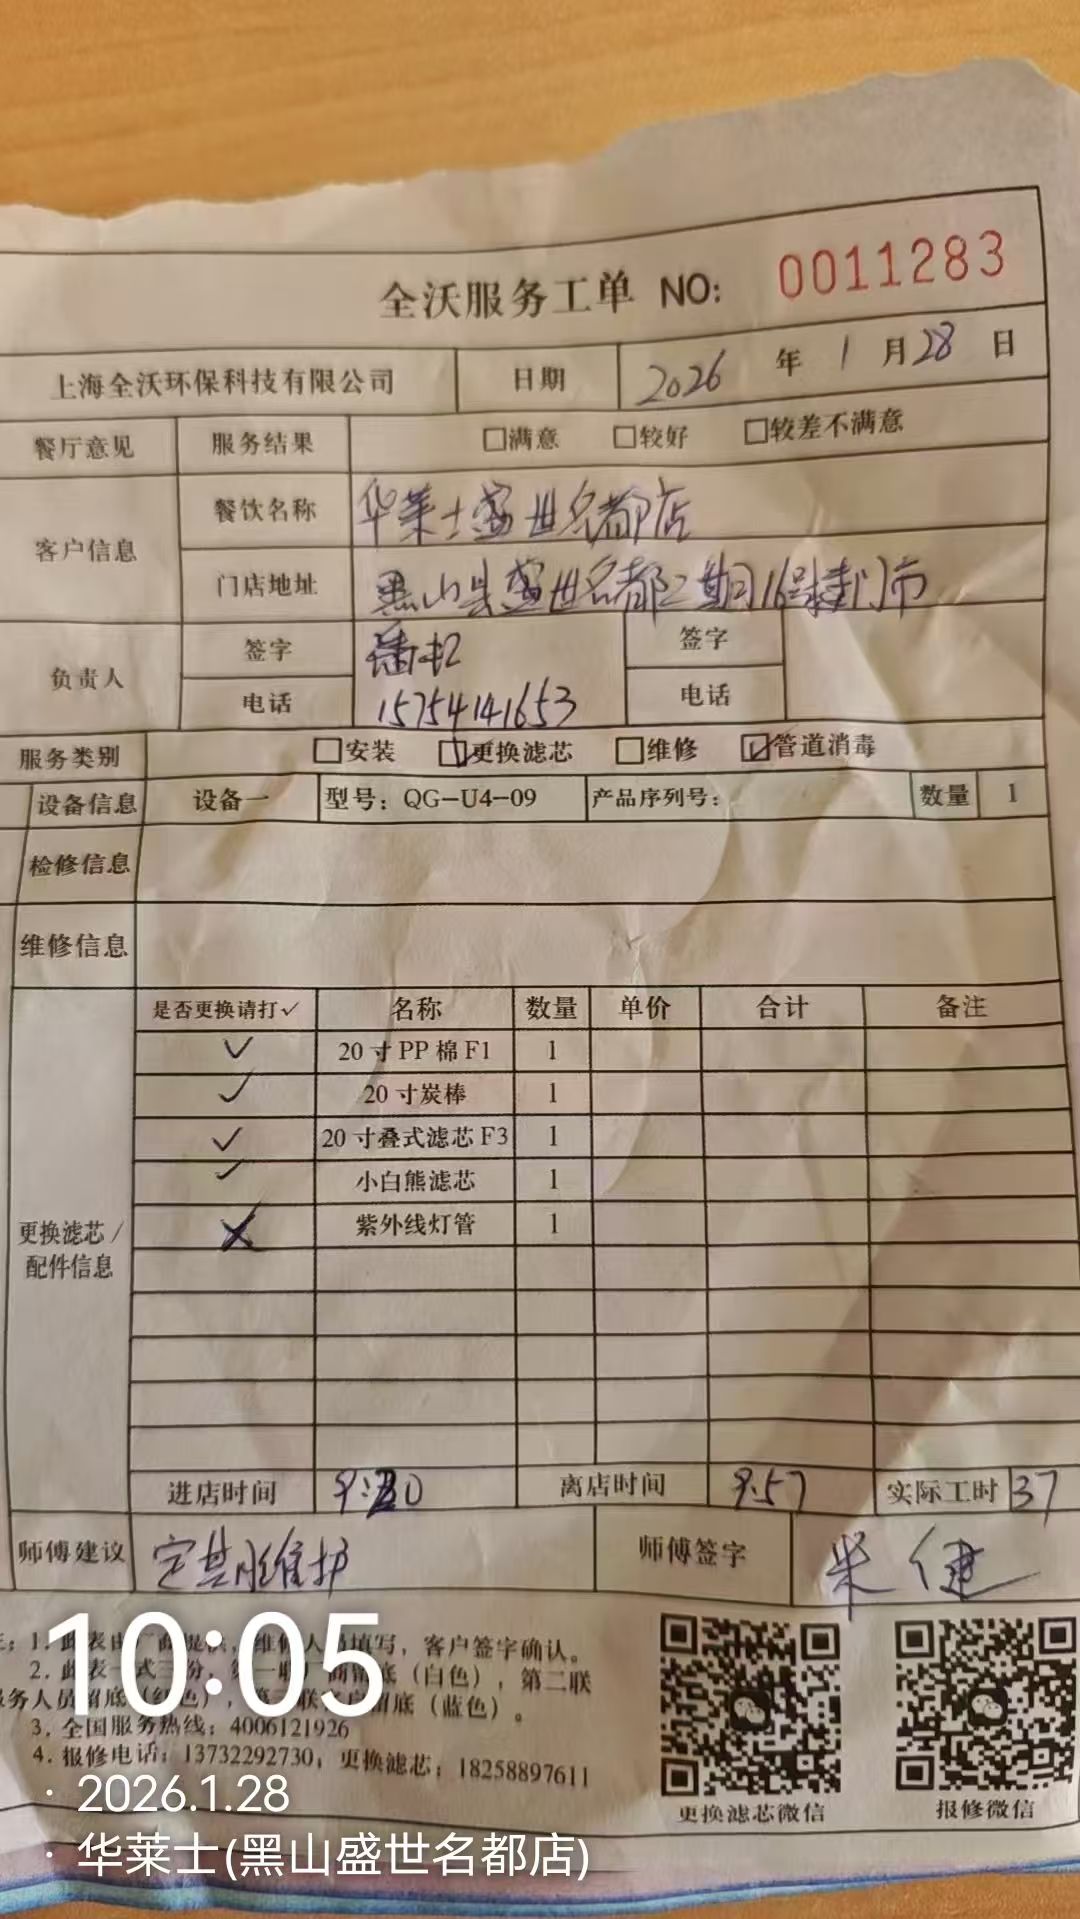 全沃服务工单 NO: 0011283
上海全沃环保科技有限公司 日期 2026 年 1 月 28 日
餐厅意见 服务结果 □满意 □较好 □较差不满意
客户信息 餐饮名称 华莱士盛世名都店
门店地址 黑山县盛世名都二期16号楼门市
负责人 签字 签字
电话 15754141653 电话
服务类别 □安装 ☑更换滤芯 □维修 ☑管道消毒
设备信息 设备一 型号: QG-U4-09 产品序列号: 数量 1
检修信息
维修信息
更换滤芯/
配件信息
是否更换请打✓ 名称 数量 单价 合计 备注
✓ 20寸PP棉F1 1
✓ 20寸炭棒 1
✓ 20寸叠式滤芯F3 1
✓ 小白熊滤芯 1
✗ 紫外线灯管 1
进店时间 9:20 离店时间 9:57 实际工时 37
师傅建议 定期维护 师傅签字 健
1. 此表由厂商提供, 维修人员填写, 客户签字确认。
2. 此表一式三份, 第一联厂商留底(白色), 第二联
服务人员留底(红色), 第三联客户留底(蓝色)。
3. 全国服务热线: 4006121926
4. 报修电话: 13732292730, 更换滤芯: 18258897611
更换滤芯微信 报修微信
10:05
· 2026.1.28
· 华莱士(黑山盛世名都店)